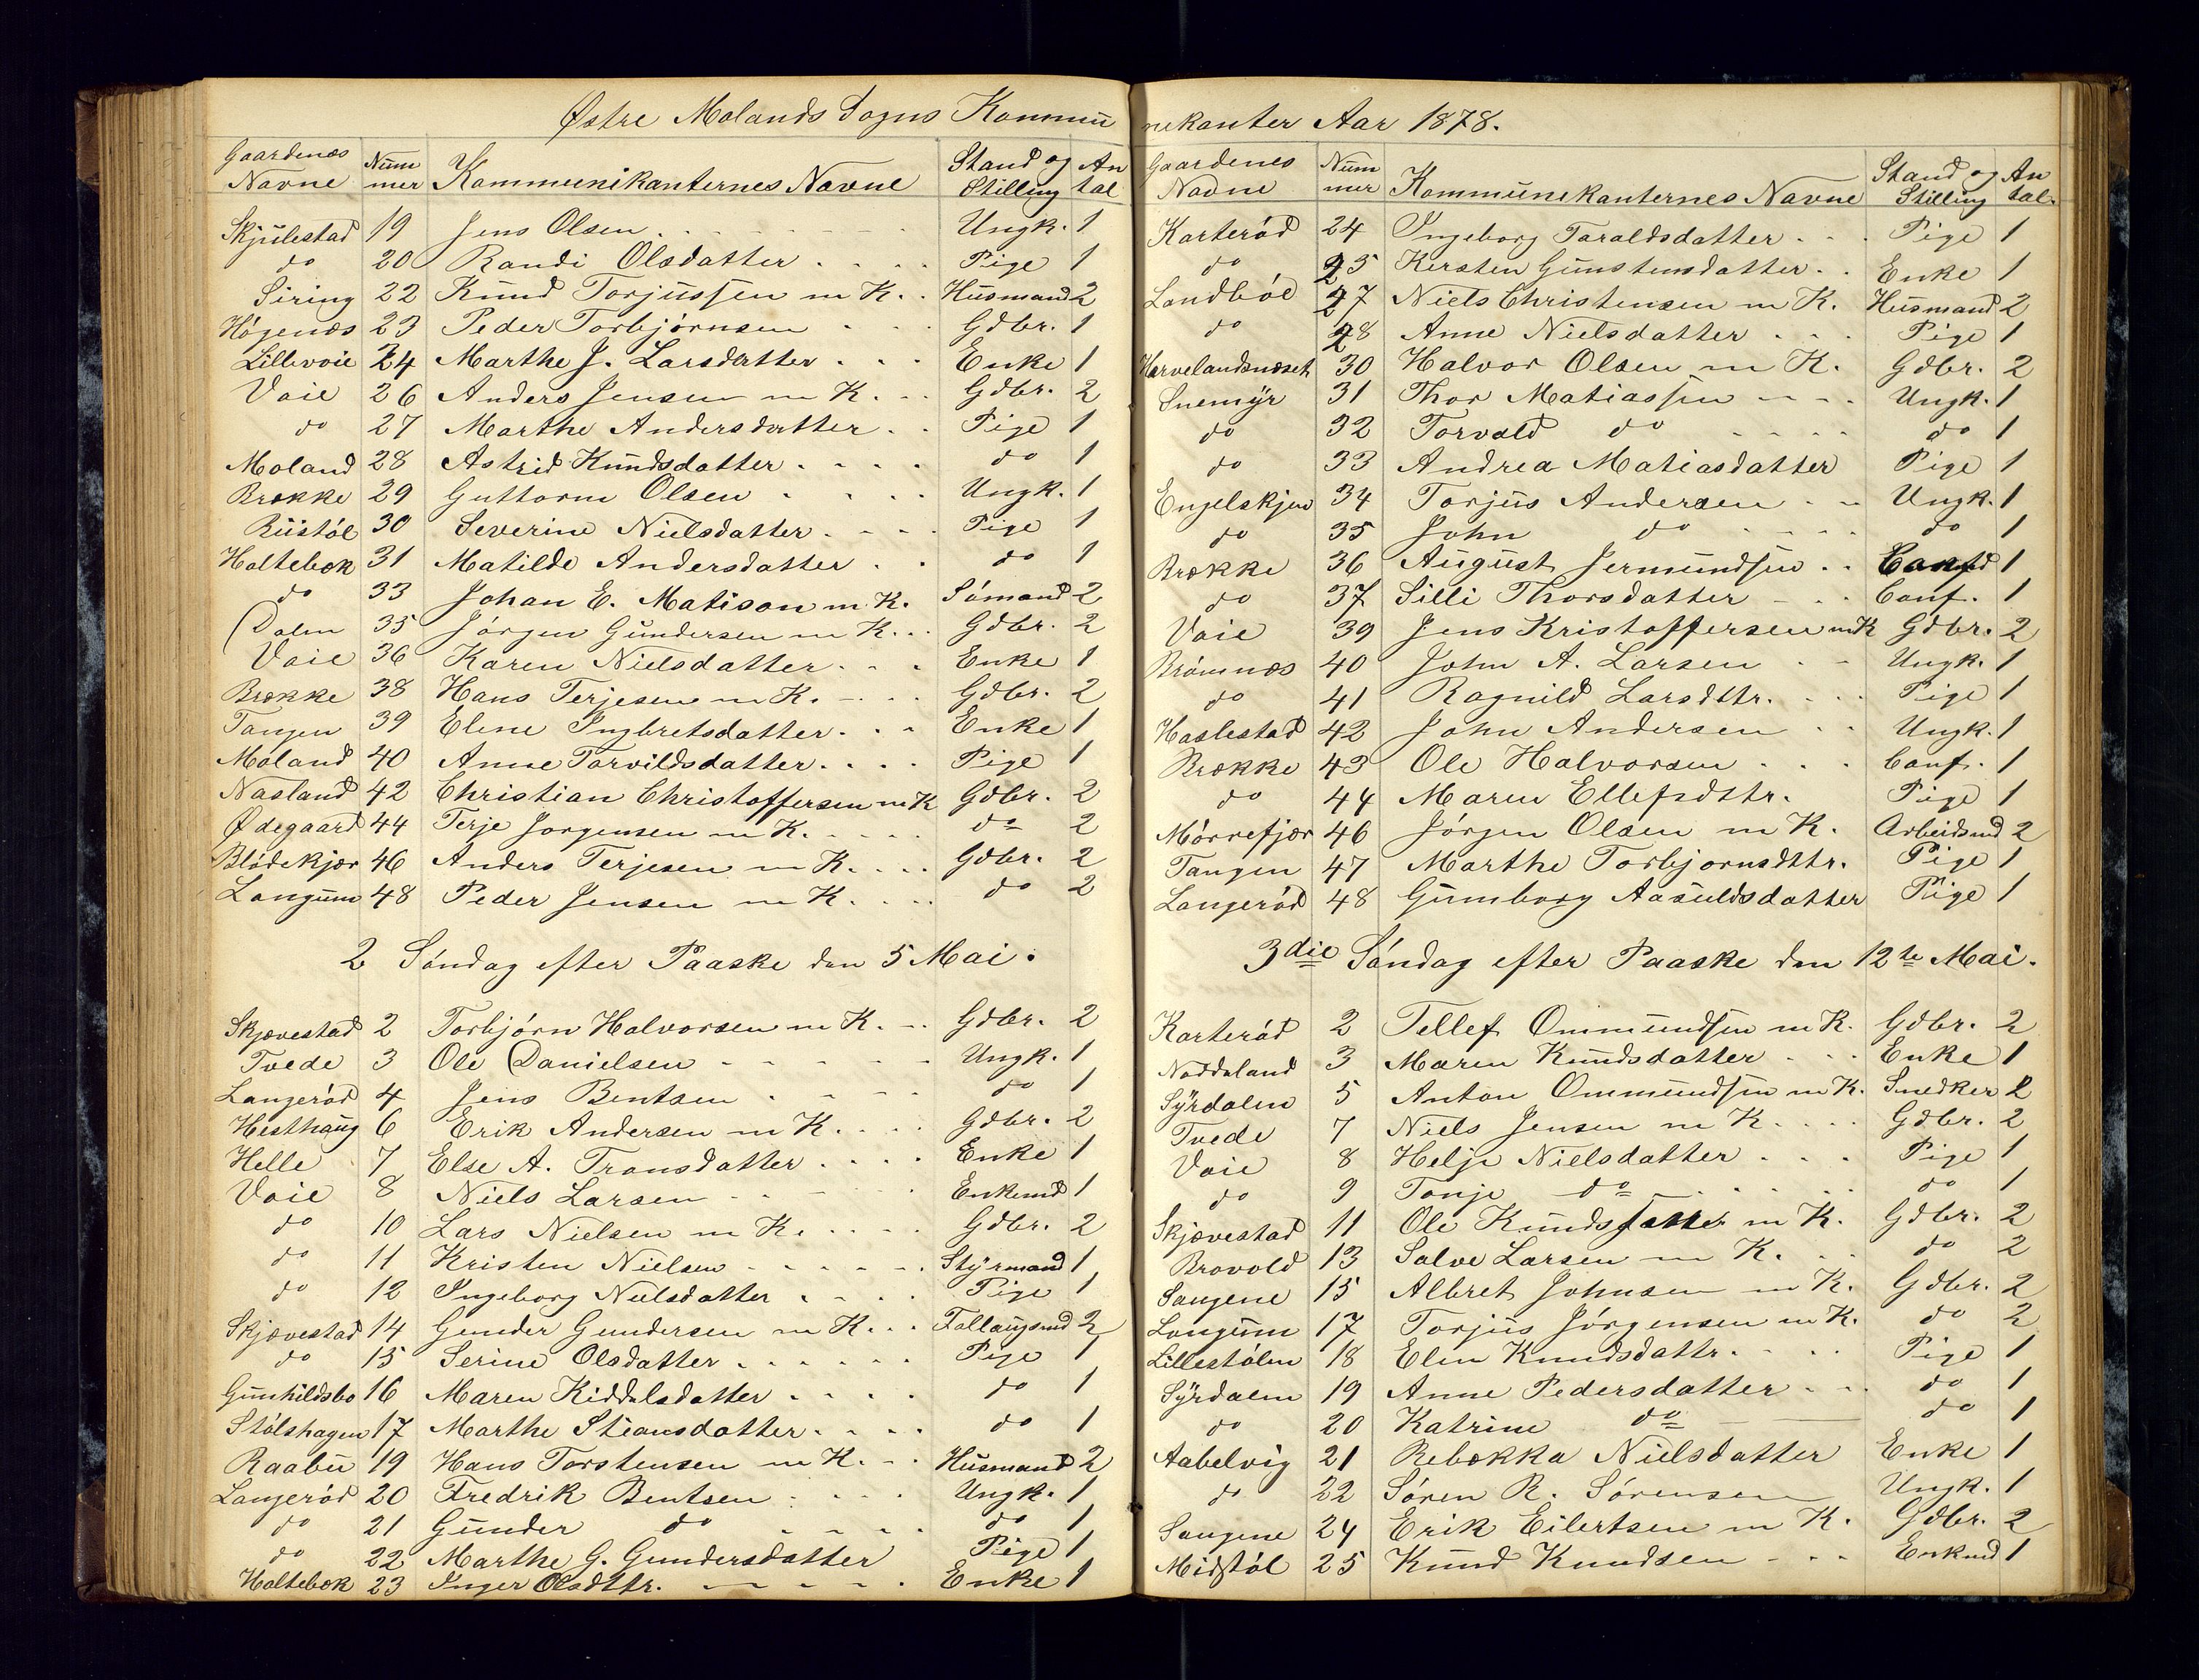 Østre Molands Sogns Kommu
Gaardenes Navne Nummer Kommunikanternes Navne Stand og Stilling Antal
Skjulestad 19 Jens Olsen Ungk. 1
do 20 Randi Olsdatter Pige 1
Siring 22 Knud Torjussen m K. Husmand 2
Høgenæs 23 Peder Torbjørnsen Gdbr. 1
Lillevoie 24 Marthe J. Larsdatter Enke 1
Voie 26 Anders Jensen m K. Gdbr. 2
do 27 Marthe Andersdatter Pige 1
Moland 28 Astrid Knudsdatter do 1
Brække 29 Guttorm Olsen Ungk. 1
Rustøl 30 Severine Nielsdatter Pige 1
Holtebæk 31 Matilde Andersdatter do 1
do 33 Johan E. Matison m K. Sømand 2
Dalen 35 Jørgen Gundersen m K. Gdbr. 2
Voie 36 Karen Nielsdatter Enke 1
Brække 38 Hans Terjesen m K. Gdbr. 2
Tangen 39 Elene Ingbretsdatter Enke 1
Moland 40 Anne Torvildsdatter Pige 1
Næsland 42 Christian Christoffersen m K Gdbr. 2
Ødegaard 44 Terje Jorgensen m K. do 2
Blødekjær 46 Anders Terjesen m K. Gdbr. 2
Langum 48 Peder Jensen m K. do 2
2 Søndag efter Paaske den 5 Mai.
Skjævestad 2 Torbjørn Halvorsen m K. Gdbr. 2
Tvede 3 Ole Danielsen Ungk. 1
Langerød 4 Jens Bentsen do 1
Hesthaug 6 Erik Andersen m K. Gdbr. 2
Helle 7 Else A. Tronsdatter Enke 1
Voie 8 Niels Larsen Enkemd 1
do 10 Lars Nielsen m K. Gdbr. 2
do 11 Kristen Nielsen Styrmand 1
do 12 Ingeborg Nielsdatter Pige 1
Skjævestad 14 Gunder Gundersen m K. Follaugsmd 2
do 15 Serine Olsdatter Pige 1
Gunhildsbo 16 Maren Kiddelsdatter do 1
Stølshagen 17 Marthe Stiansdatter do 1
Raabu 19 Hans Torstensen m K. Husmand 2
Langerød 20 Fredrik Bentsen Ungk. 1
do 21 Gunder do do 1
do 22 Marthe G. Gundersdatter Pige 1
Holtebæk 23 Inger Olsdttr. Enke 1
nekanter Aar 1878.
Gaardenes Navne Nummer Kommunekanternes Navne Stand og Stilling Antal
Karterød 24 Ingeborg Taraldsdatter Pige 1
do 25 Kersten Gunstensdatter Enke 1
Landbøe 27 Niels Christensen m K. Husmand 2
do 28 Anne Nielsdatter Pige 1
Harvelandsnæset 30 Halvor Olsen m K. Gdbr. 2
Snemyr 31 Thor Matiassen Ungk. 1
do 32 Torvald do do 1
do 33 Andrea Matiasdatter Pige 1
Engelskjen 34 Torjus Andersen Ungk. 1
do 35 John do do 1
Brække 36 August Jermundsen 1
do 37 Silli Thorsdatter Conf. 1
Voie 39 Jens Kristoffersen m K Gdbr. 2
Brømnæs 40 John A. Larsen Ungk. 1
do 41 Ragnild Larsdttr. Pige 1
Haslestad 42 John Andersen Ungk. 1
Brække 43 Ole Halvorsen Conf. 1
do 44 Maren Ellefsdttr. Pige 1
Mørrefjær 46 Jørgen Olsen m K. Arbeidsmd 2
Tangen 47 Marthe Torbjornsdttr. Pige 1
Langerød 48 Gumborg Aasuldsdatter Pige 1
3die Søndag efter Paaske den 12te Mai.
Karterød 2 Tellef Ommundsen m K. Gdbr. 2
Noddeland 3 Maren Knudsdatter Enke 1
Syrdalen 5 Anton Ommundsen m K. Snedker 2
Tvede 7 Niels Jensen m K. Gdbr. 2
Voie 8 Helje Nielsdatter Pige 1
do 9 Tonje do do 1
Skjævestad 11 Ole m K. Gdbr. 2
Brovold 13 Salve Larsen m K. do 2
Songene 15 Albret Johnsen m K. Gdbr. 2
Longum 17 Torjus Jørgensen m K. do 2
Lillestølen 18 Elen Knudsdattr. Pige 1
Syrdalen 19 Anne Pedersdatter do 1
do 20 Katrine do do 1
Aabelvig 21 Rebekka Nielsdatter Enke 1
do 22 Søren R. Sørensen Ungk. 1
Songene 24 Erik Eilertsen m K. Gdbr. 2
Midtstøl 25 Knud Knudsen Enkmd 1